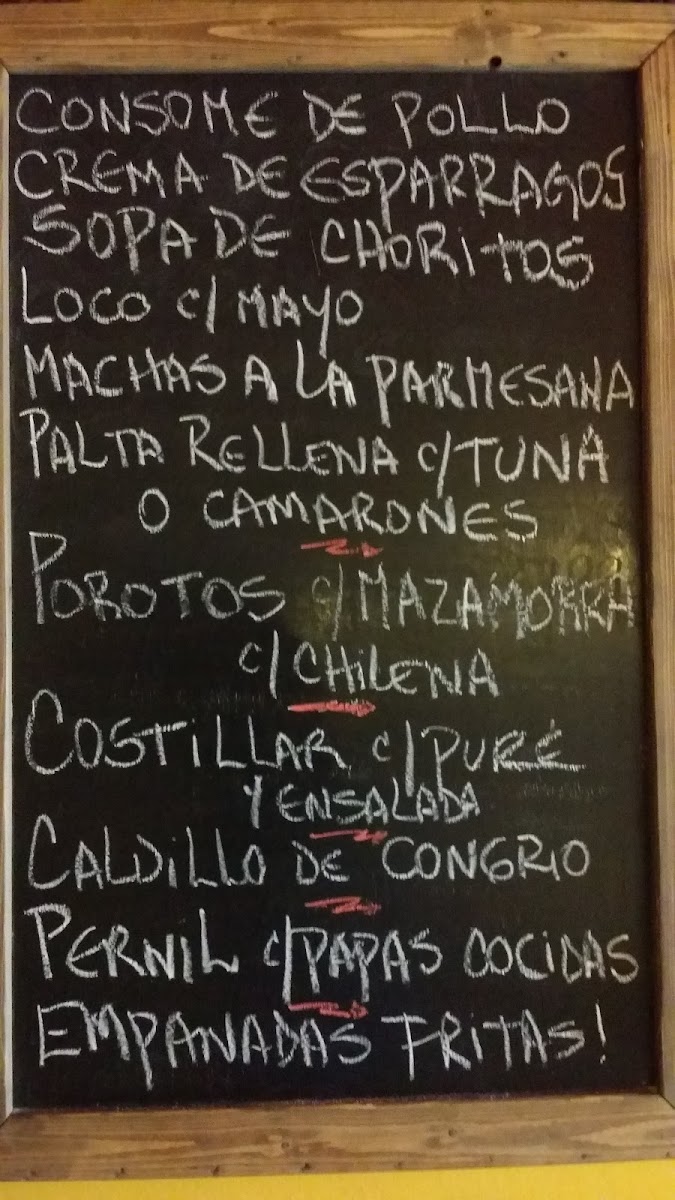 CONSOME DE POLLO
CREMA DE ESPARRAGOS
SOPA DE CHORITOS
LOCO C/ MAYO
MACHAS A LA PARMESANA
PALTA RELLENA C/ TUNA
O CAMARONES
POROTOS C/ MAZAMORRA
C/ CHILENA
COSTILLAR C/ PURÉ
Y ENSALADA
CALDILLO DE CONGRIO
PERNIL C/ PAPAS COCIDAS
EMPANADAS FRITAS!